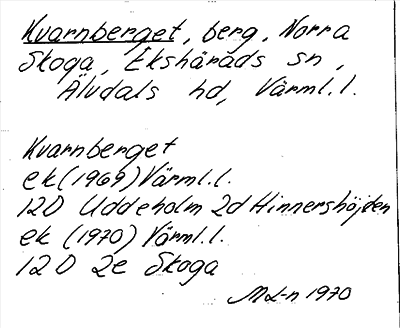 Kvarnberget, berg, Norra
Skoga, Ekshärads sn,
Älvdals hd, Värml.l.
Kvarnberget
ek (1969) Värml.l.
12D Uddeholm 2d Hinnershöjden
ek (1970) Värml.l.
12D 2e Skoga
ML-n 1970